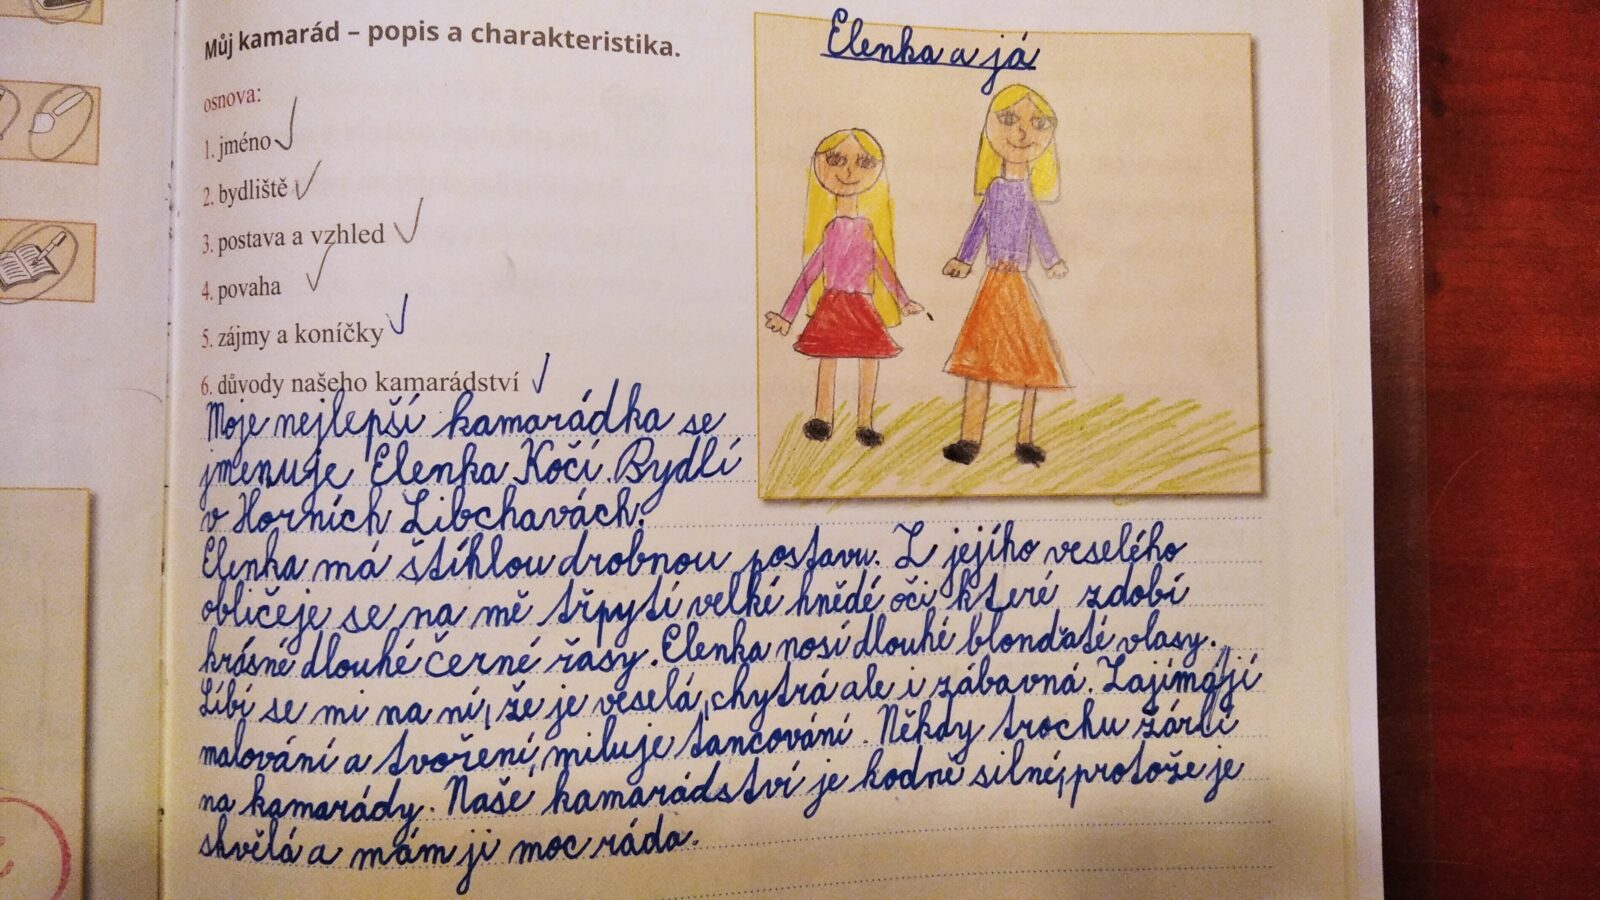 Můj kamarád – popis a charakteristika.
Elenka a já
osnova:
1. jméno
2. bydliště
3. postava a vzhled
4. povaha
5. zájmy a koníčky
6. důvody našeho kamarádství
Moje nejlepší kamarádka se
jmenuje Elenka Kočí. Bydlí
v Horních Libchavách.
Elenka má štíhlou drobnou postavu. Z jejího veselého
obličeje se na mě třpytí velké hnědé oči které zdobí
krásné dlouhé černé řasy. Elenka nosí dlouhé blonďaté vlasy.
Líbí se mi na ní, že je veselá, chytrá ale i zábavná. Zajímají jí
malování a tvoření, miluje tancování. Někdy trochu žárlí
na kamarády. Naše kamarádství je hodně silné, protože je
skvělá a mám ji moc ráda.